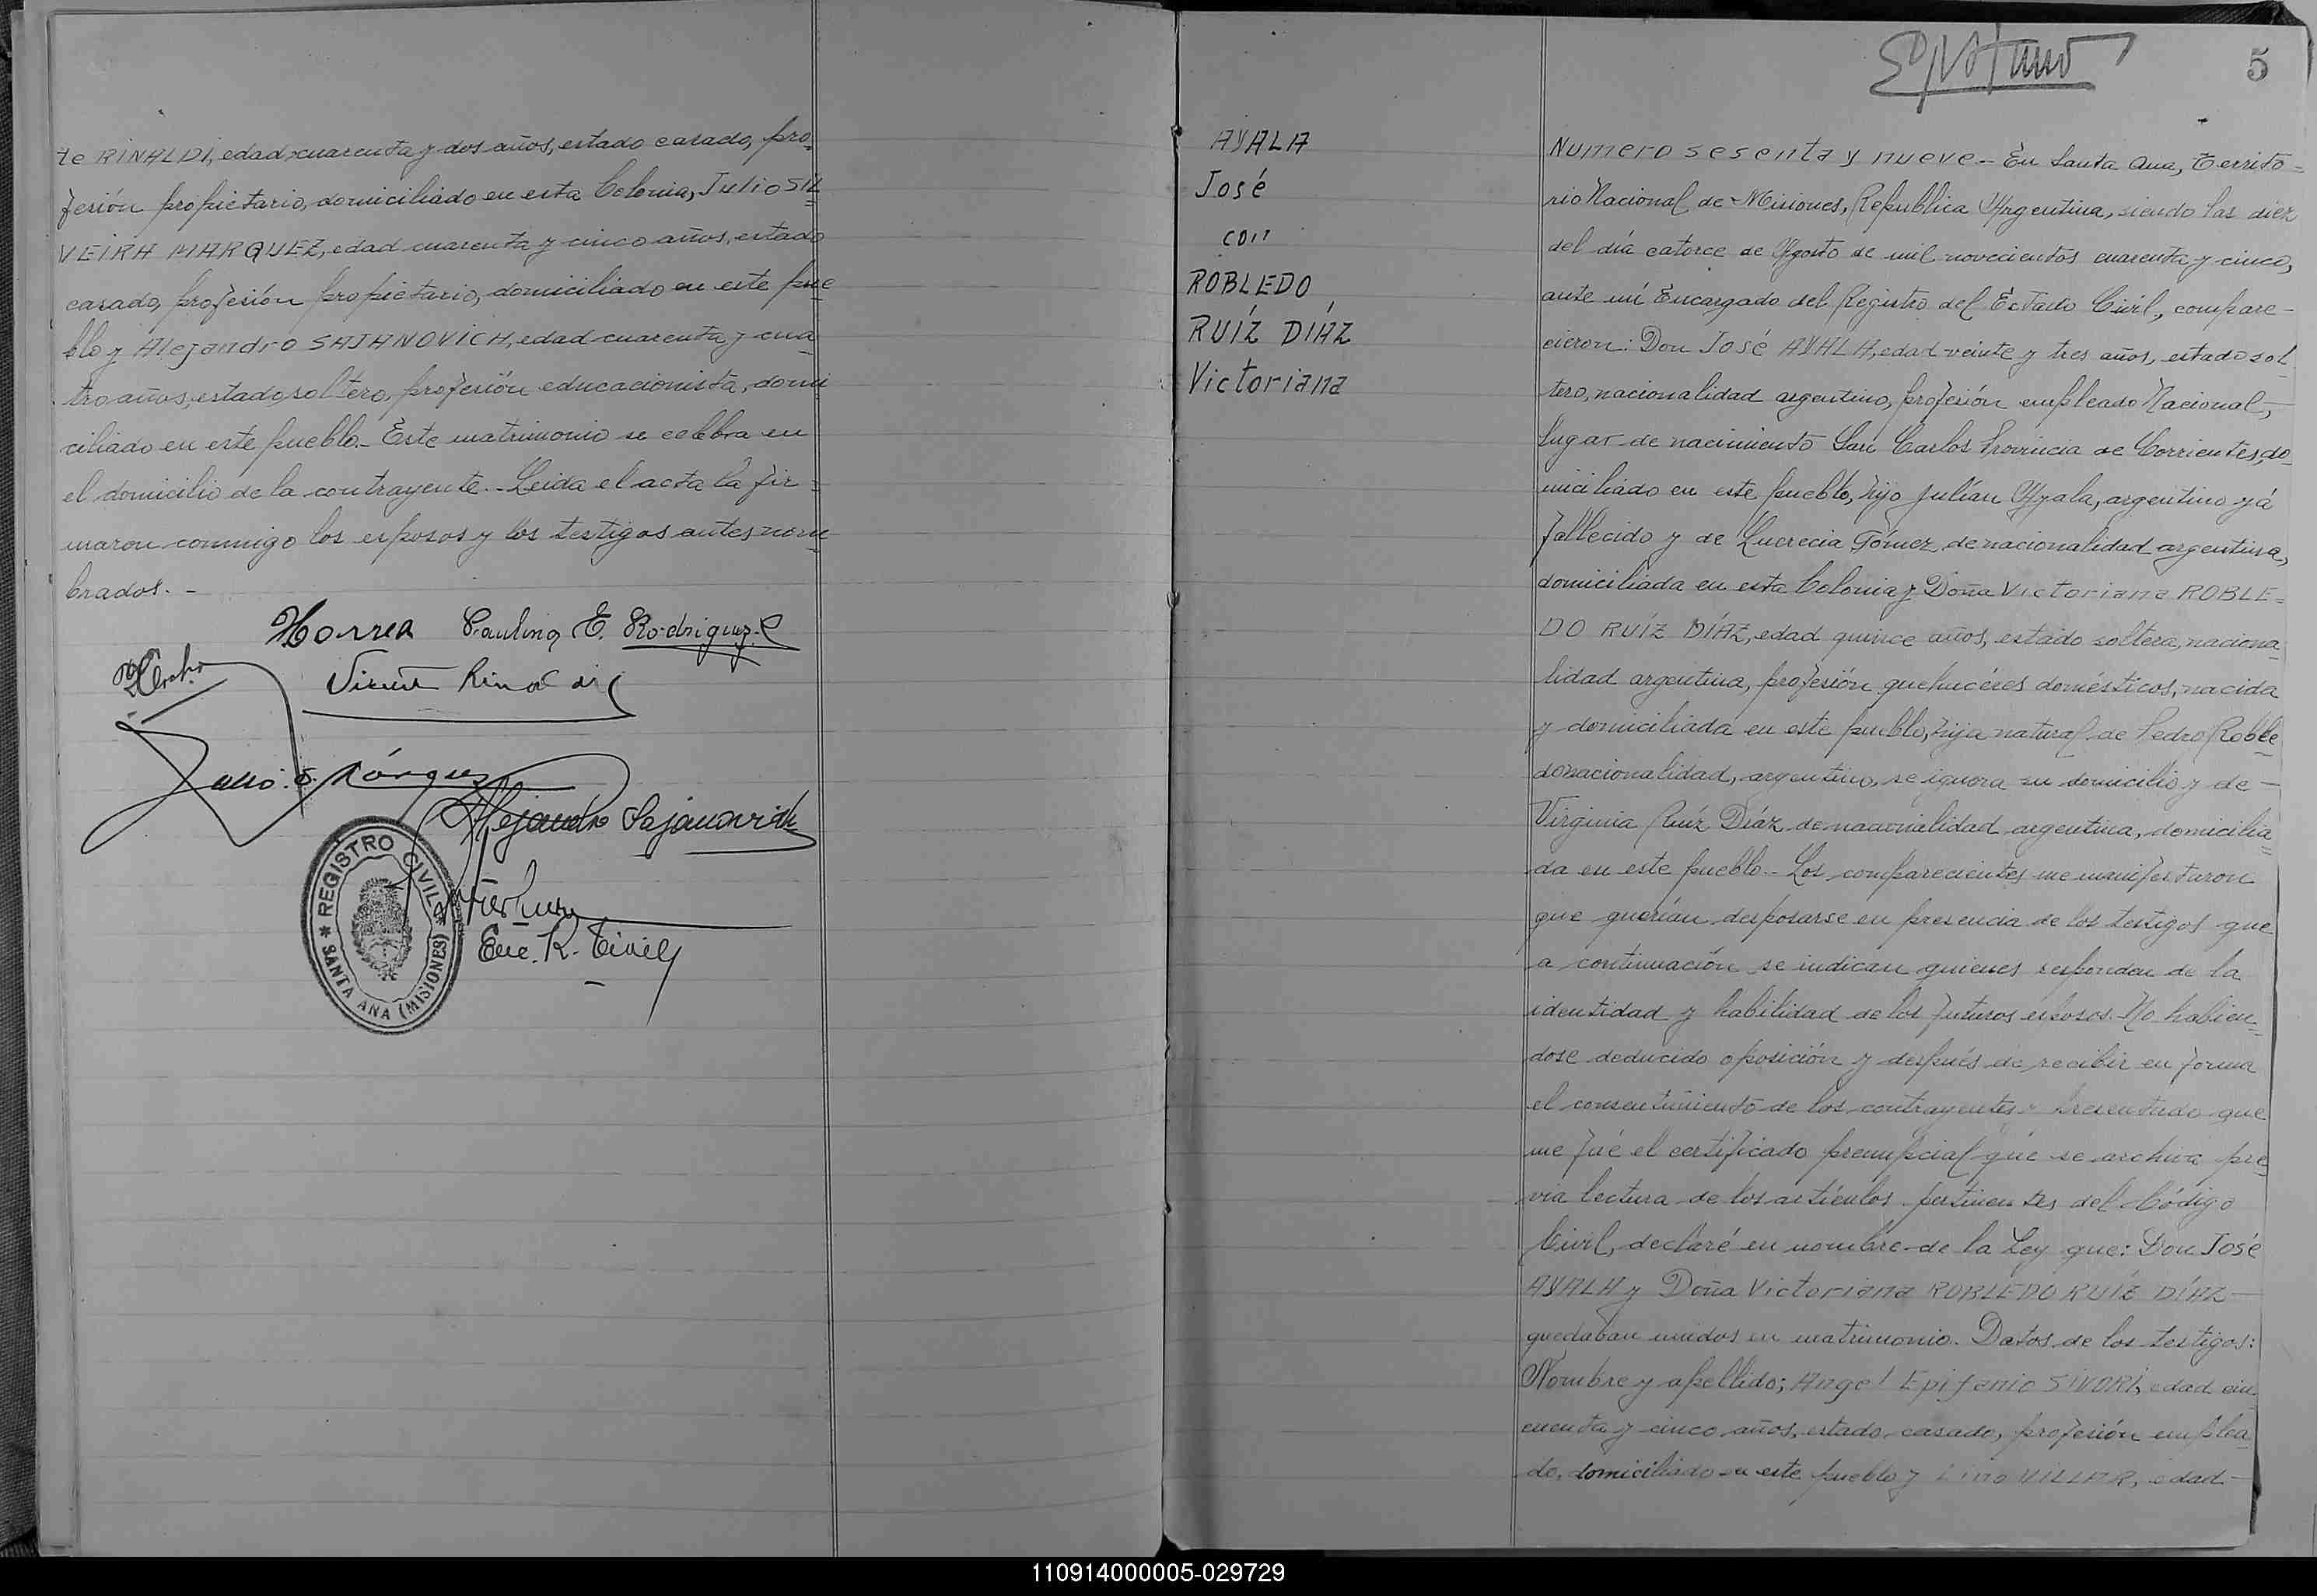 te RINALDI, edad, cuarenta y dos años, estado casado, pro-
fesión propietario, domiciliado en esta Colonia, Julio SIL=
VEIRA MARQUEZ, edad cuarenta y cinco años, estado
casado, profesión propietario, domiciliado en este pue=
blo y Alejandro SAJANOVICH, edad cuarenta y cua=
tro años, estado, soltero, profesión educacionista, domi=
ciliado en este pueblo.- Este matrimonio se celebra en
el domicilio de la contrayente.- Leida el acta la fir=
maron conmigo los esposos y los testigos antes nom=
brados.-
Paulina E. Rodriguez
Alejandro Sajanovich
Enc. R. Civil
* REGISTRO CIVIL *
SANTA ANA (MISIONES)
AYALA
José
con
ROBLEDO
RUÍZ DÍAZ
Victoriana
5
Numero sesenta y nueve.- En Santa Ana, Territo=
rio Nacional de Misiones, Republica Argentina, siendo las diez
del día catorce de Agosto de mil novecientos cuarenta y cinco,
ante mí Encargado del Registro del Estado Civil, compare-
cieron: Don José AYALA, edad veinte y tres años, estado sol
tero, nacionalidad argentino, profesión empleado Nacional,
lugar de nacimiento San Carlos Provincia de Corrientes, do-
miciliado en este pueblo, hijo Julián Ayala, argentino yá
fallecido y de Lucrecia Gómez, de nacionalidad argentina,
domiciliada en esta Colonia y Doña Victoriana ROBLE=
DO RUÍZ DÍAZ, edad quince años, estado soltera, naciona=
lidad argentina, profesión quehacéres domésticos, nacida
y domiciliada en este pueblo, hija natural de Pedro Roble
do nacionalidad, argentino, se ignora su domicilio y de-
Virginia Ruíz Díaz de nacionalidad argentina, domicilia=
da en este pueblo.- Los comparecientes me manifestaron
que querían desposarse en presencia de los testigos que
a continuación se indican quienes responden de la
identidad y habilidad de los futuros esposos. No habien=
dose deducido oposición y después de recibir en forma
el consentimiento de los contrayentes y presentado que
me fué el certificado prenupcial que se archiva pre
via lectura de los artículos pertinentes del Código
Civil, declaré en nombre de la Ley que: Don José
AYALA y Doña Victoriana ROBLEDO RUÍZ DÍAZ-
quedaban unidos en matrimonio. Datos de los testigos:
Nombre y apellido; Angel Epifanio SIVORI, edad cin
cuenta y cinco años, estado casado, profesión emplea
do, domiciliado en este pueblo y Lino VILLAR, edad-
110914000005-029729